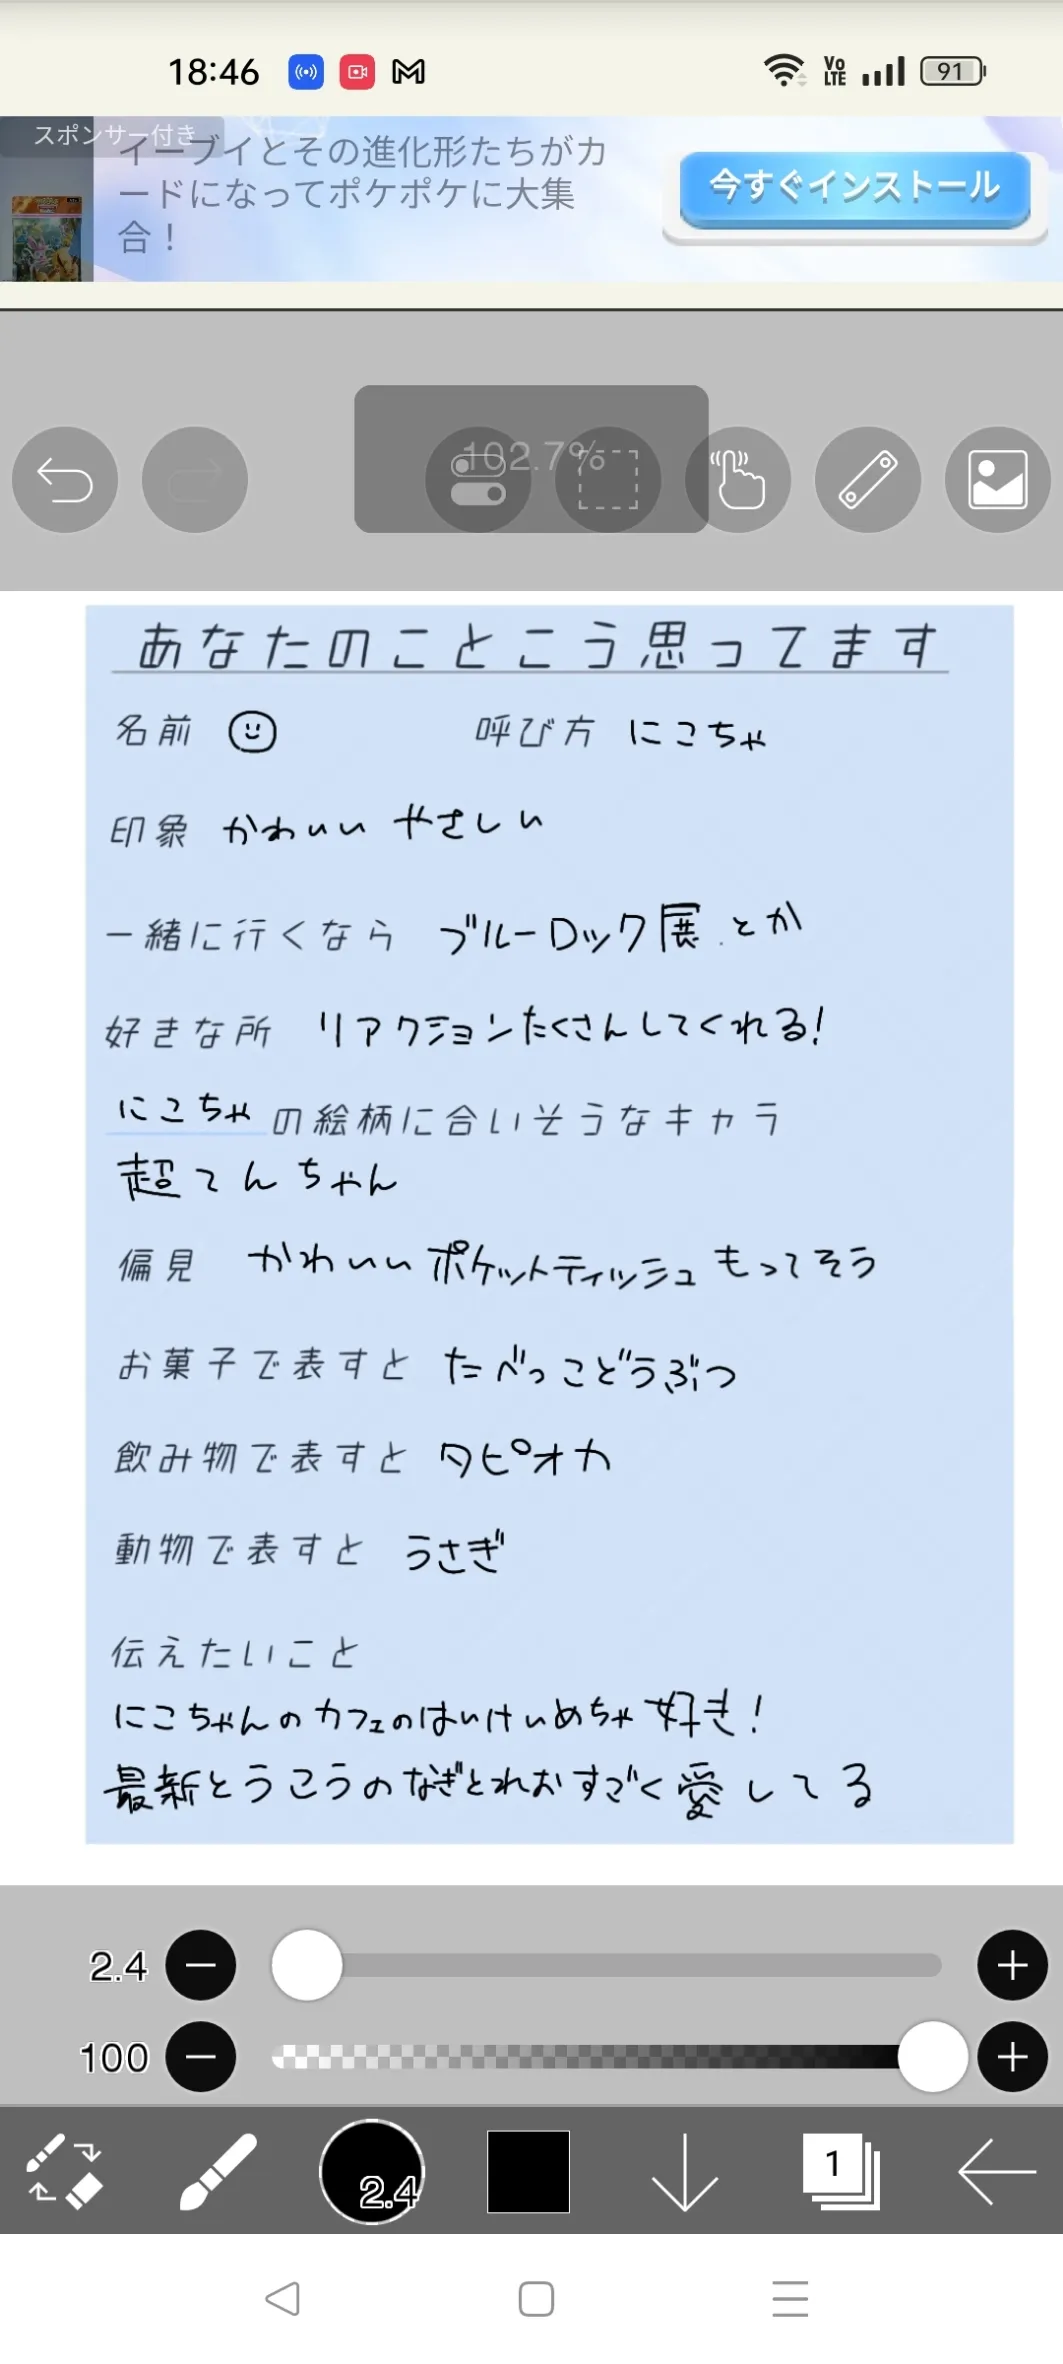 18:46
Vo LTE
91
スポンサー付き
イーブイとその進化形たちがカ
ードになってポケポケに大集
合！
今すぐインストール
102.7%
あなたのことこう思ってます
名前 呼び方 にこちゃ
印象 かわいい やさしい
一緒に行くなら ブルーロック展とか
好きな所 リアクションたくさんしてくれる!
にこちゃの絵柄に合いそうなキャラ
超てんちゃん
偏見 かわいいポケットティッシュもってそう
お菓子で表すと たべっこどうぶつ
飲み物で表すと タピオカ
動物で表すと うさぎ
伝えたいこと
にこちゃんのカフェのはいけいめちゃ好き!
最新とうこうのなぎとれおすごく愛してる
2.4
100
2.4
1